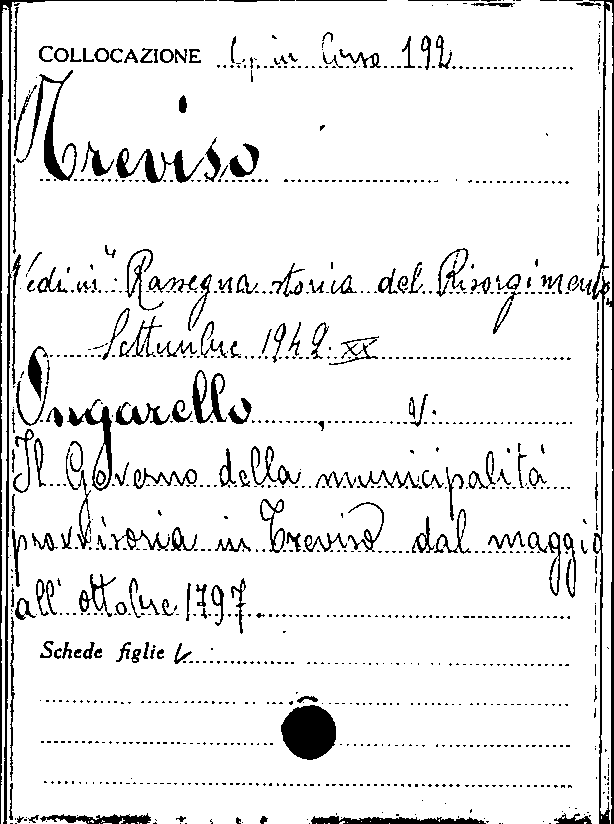 COLLOCAZIONE Cp. in Corso 192
Treviso
Vedi in "Rassegna storica del Risorgimento"
Settembre 1942. XX
Ingarello, V.
Il Governo della municipalità
provvisoria in Treviso dal maggio
all'ottobre 1797.
Schede figlie